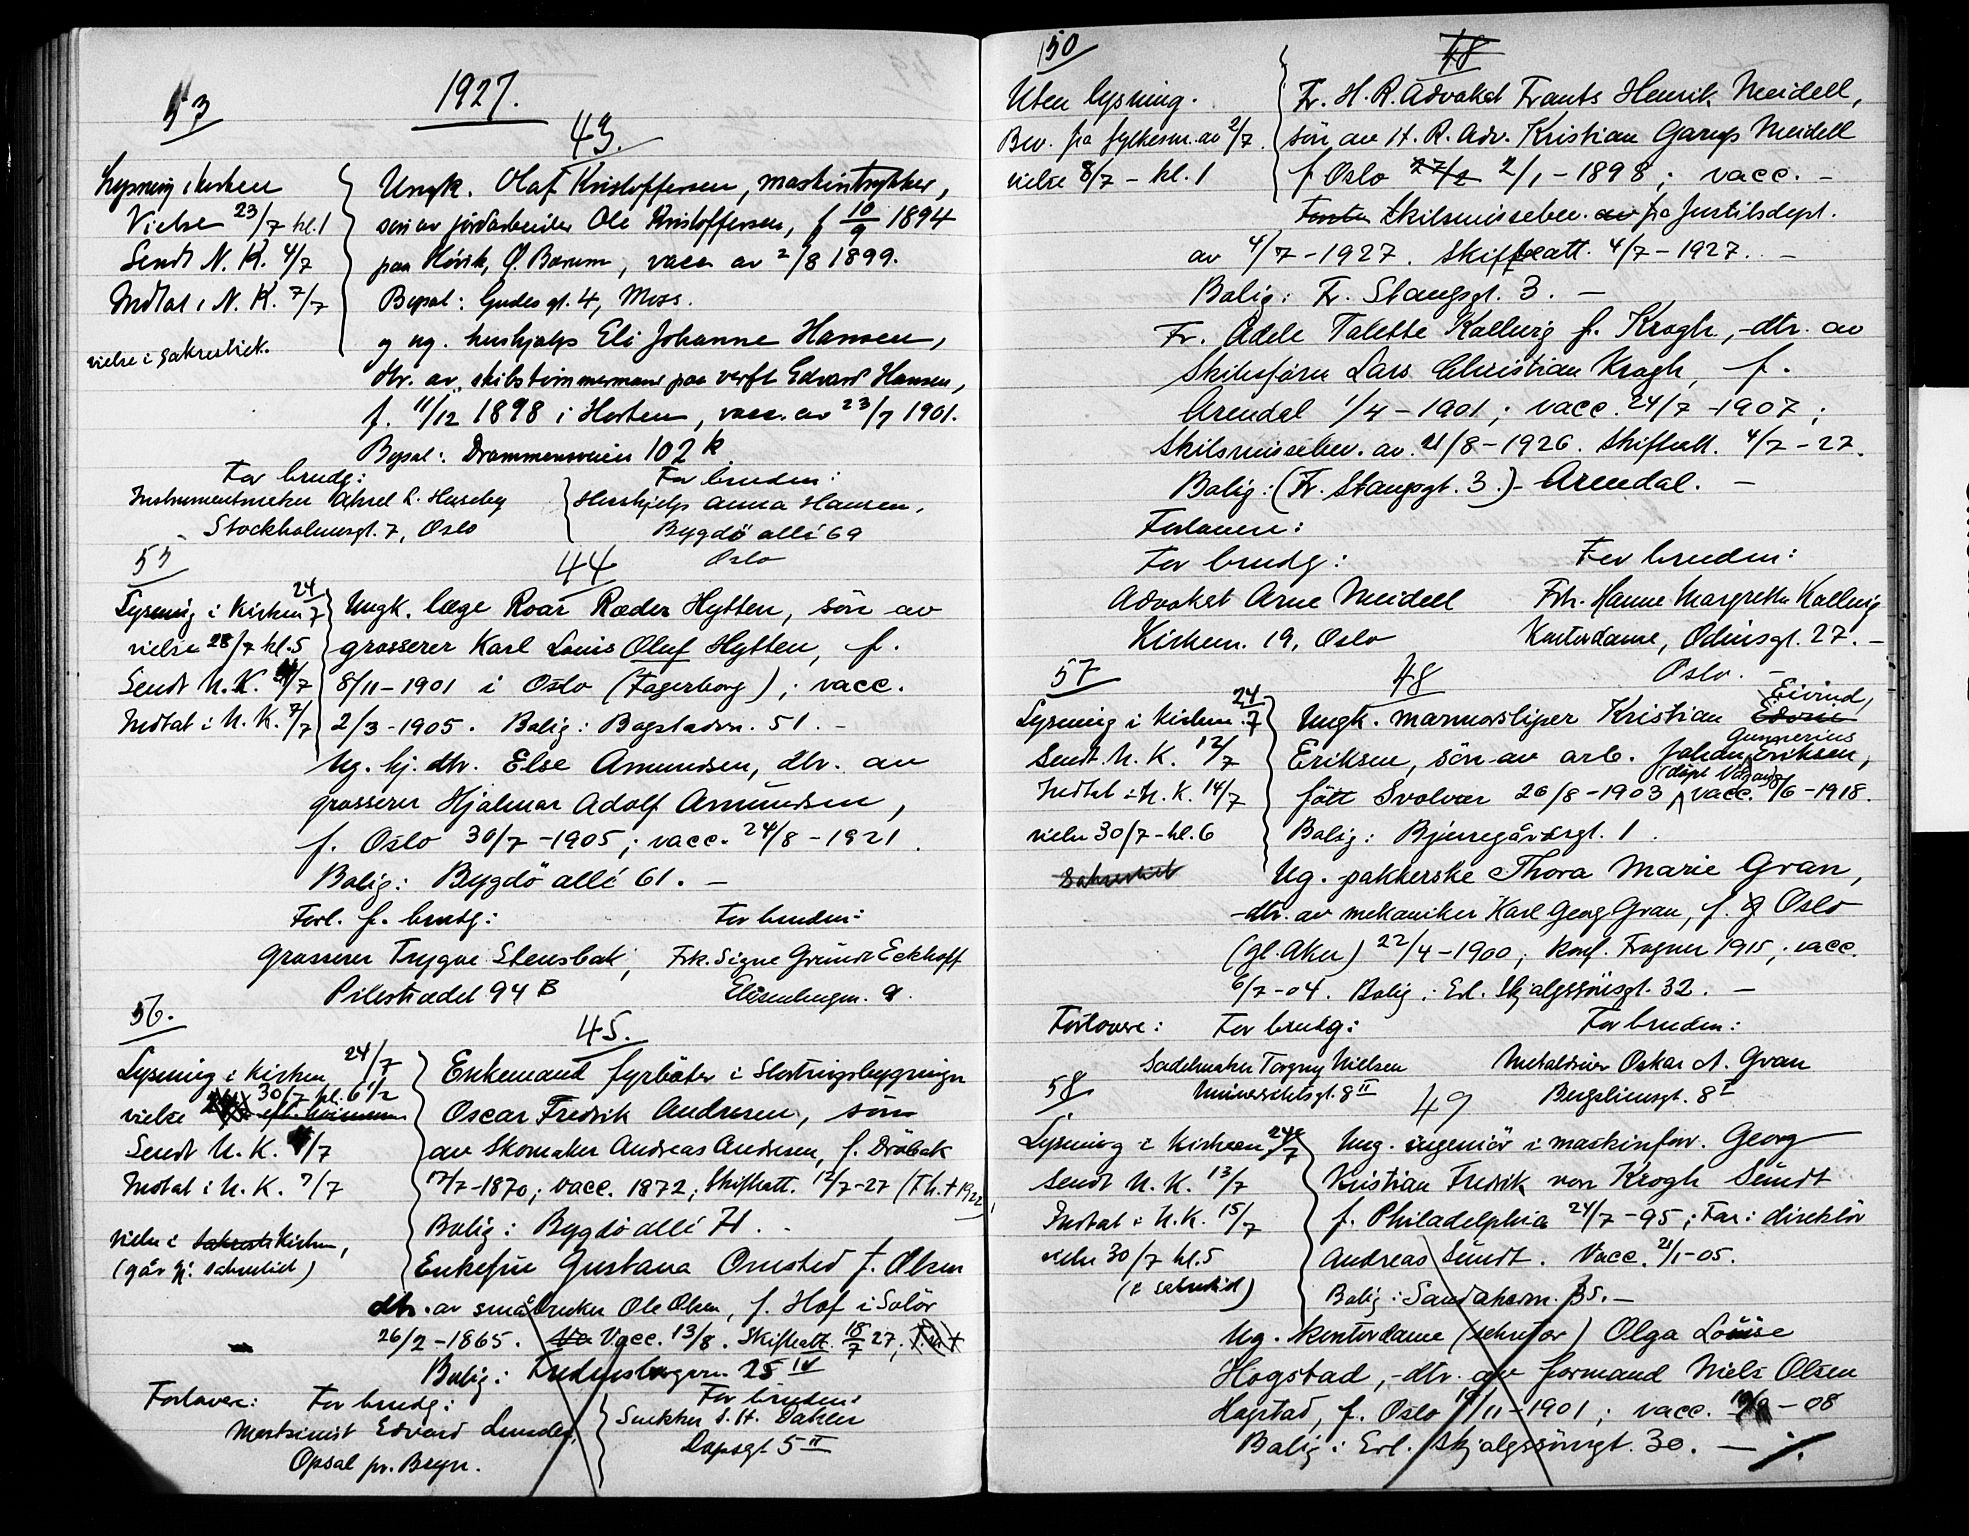 1927.
53
43.
Lysning i kirken
Vielse 23/7 kl. 1
Sendt N. K. 4/7
Indtat i N. K. 7/7
vielse i sakristiet.
Ungk. Olaf Kristoffersen, maskintrykker,
søn av jordarbeider Ole Kristoffersen, f 10/9 1894
paa Høvik, Ø. Bærum, vacc. av 2/8 1899.
Bopæl: Gudesgt. 4, Moss.
og ug. hushjælp Eli Johanne Hansen,
dtr. av skibstømmermand paa verft Edvard Hansen,
f. 11/12 1898 i Horten, vacc. av 23/7 1901.
Bopæl: Drammensveien 102 k
For brudg:
Instrumentmaker Aksel L. Huseby
Stockholmsgt. 7, Oslo
For bruden:
Hushjelp Anna Hansen,
Bygdö allé 69
Oslo
55
44
Lysning i kirken 24/7
vielse 28/7 kl. 5
Sendt N. K. 4/7
Indtat i N. K. 7/7
Ungk. læge Roar Ræder Hytten, sön av
grosserer Karl Louis Oluf Hytten, f.
8/11-1901 i Oslo (Fagerborg); vacc.
2/3-1905. Bolig: Bogstadvn. 51. -
Ug. hj. dtr. Else Amundsen, dtr. av
grosserer Hjalmar Adolf Amundsen,
f. Oslo 30/7-1905; vacc. 24/8-1921.
Bolig: Bygdö allé 61. -
Forl. f. brudg:
For bruden:
Grosserer Trygve Stensbak,
Pilestrædet 94 B
Frk. Signe Gründt Eckhoff
Eilisenbergvn. 9.
56.
45.
Lysning i kirken 24/7
vielse 30/7 kl. 6 1/2
Sendt N. K. /7
Indtat i N. K. 7/7
Vielse i Sakristi kirken,
(går gj. sakristiet)
Enkemand fyrböter i Stortingsbygningen
Oscar Fredrik Andresen, sön
av skomaker Andreas Andresen, f. Dröbak
17/7-1870; vacc. 1872; Skifteatt. 12/7-27 (Fh. + 1922)
Bolig: Bygdö allé 71. -
Enkefru Gustava Omsted f. Olsen
dtr. av småbruker Ole Olsen, f. Hof i Solör
26/2-1865. Vacc. 13/8. Skifteatt. 18/7 27.
Bolig: Fredensborgvn. 25 IV
Forlovere: For brudg:
Maskinist Edvard Lunder,
Opsal pr. Bryn.
For bruden:
Snekker S. H. Dahler
Dopsgt 5 II
50
48
Uten lysning.
Bev. fra fylkesm. av 2/7.
vielse 8/7 - kl. 1
Fr. H. R. Advokat Frants Henrik Meidell,
sön av H. R. Adv. Kristian Garup Meidell
f Oslo 27/2 2/1-1898; vacc. -
Skilsmissebev. av fra Justisdept.
av 4/7-1927. Skifteatt. 4/7-1927. -
Bolig: Fr. Stangsgt. 3. -
Fr. Adele Talette Kallevig f. Krogh, - dtr. av
Skibsförer Lars Christian Krogh, f.
Arendal 1/4-1901; vacc. 24/7-1907;
Skilsmissebev. av. 21/8-1926. Skifteatt. 4/7-27.
Bolig: (Fr. Stangsgt. 3.) - Arendal. -
Forlovere:
For brudg:
For bruden:
Advokat Arne Meidell
Kirkevn. 19, Oslo
Frk. Hanne Margrethe Kallevig
Kontordame, Odinsgt. 27. -
Oslo. -
57
48
Lysning i kirken 24/7
Sendt N. K. 12/7
Indtat i N. K. 14/7
vielse 30/7 - kl. 6
Sakristiet
Ungk. marmorsliper Kristian Edvin Eivind,
Eriksen, sön av arb. Johan Gunnerius Eriksen,
fött Svolvær 26/8-1903 (döpt Vågan) vacc. 8/6-1918.
Bolig: Bjerregårdsgt. 1.
Ug. pakkerske Thora Marie Gran,
dtr. av mekaniker Karl Georg Gran, f. Oslo
(gl. Aker) 22/4-1900; konf. Frogner 1915; vacc.
6/7-04. Bolig: Erl. Skjalgssönsgt. 32. -
Forlovere: For brudg:
For bruden:
Sadelmaker Torgny Nielsen
Universitetsgt. 8 II
Metaldreier Oskar A. Gran
Bergliensgt. 8 I
58
49
Lysning i kirken 24/7
Sendt N. K. 13/7
Indtat i N. K. 15/7
vielse 30/7 kl. 5
(i sakristiet)
Ung. ingeniör i maskinforr. Georg
Kristian Fredrik von Krogh Sundt
f. Philadelphia 24/7-95; Far: direktör
Andreas Sundt. Vacc. 21/1-05.
Bolig: Sandakervn. 35. -
Ug. kontordame (sekretær) Olga Louise
Hogstad, - dtr. av formand Niels Olsen
Hogstad, f. Oslo 19/11-1901; vacc. -08
Bolig: Erl. Skjalgssönsgt. 30. - ./.